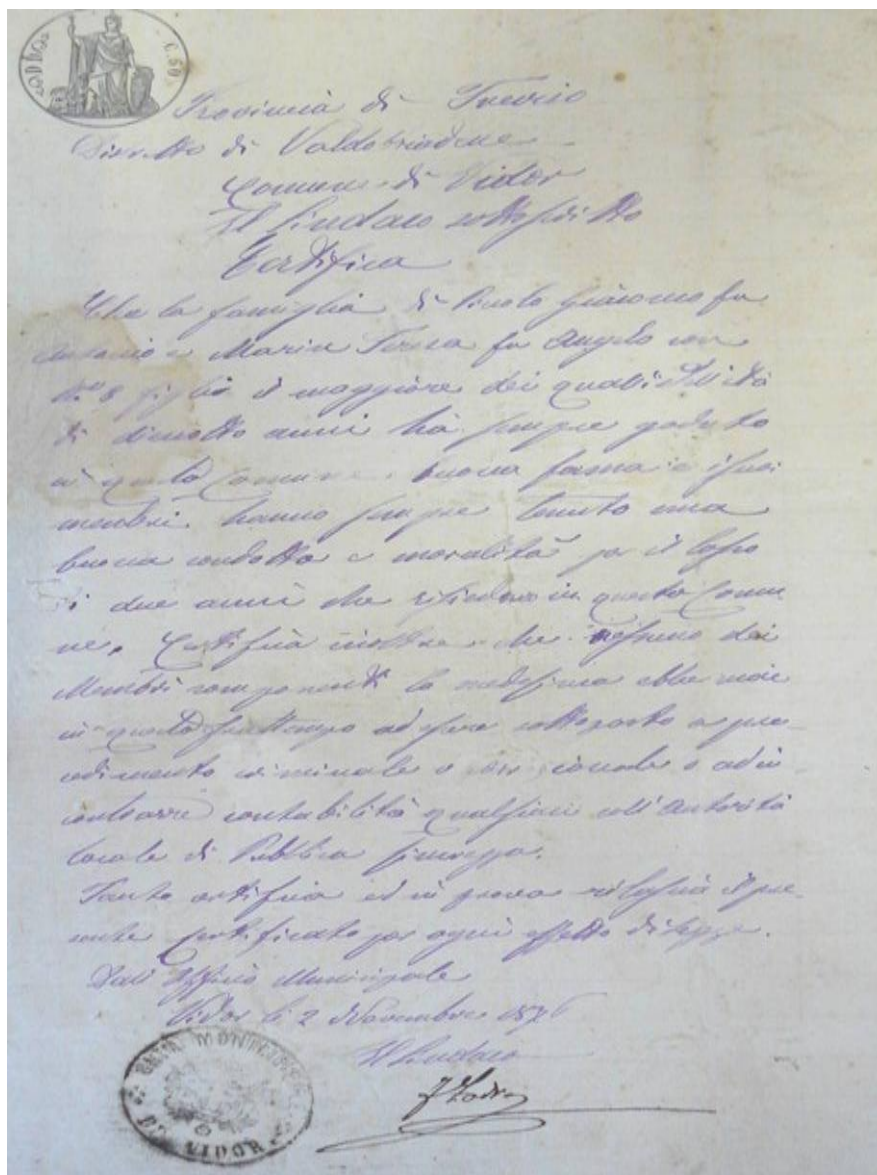 C. 50
Provincia di Treviso
Distretto di Valdobbiadene
Comune di Vidor
Il Sindaco sottoscritto
Certifica
Che la famiglia di Giacomo fu
Antonio e Marin Teresa fu Angelo con
N.º 8 figli il maggiore dei quali d'età
di diciotto anni hà sempre goduto
in questo Comune buona fama e i suoi
membri hanno sempre tenuto una
buona condotta e moralità per il lasso
di due anni che risiedono in questo Comu
ne. Certifica inoltre che nessuno dei
Membri componenti la medesima ebbe mai
in questo frattempo ad essere sottoposto a pro-
cedimento criminale o ad in-
contrare contabilità qualsiasi coll'Autorità
locale di Pubblica sicurezza.
Tanto certifica ed in prova rilascia il pre-
sente certificato per ogni effetto di legge.
Dall'Ufficio Municipale
Vidor li 2 Novembre 1876
Il Sindaco
VIDOR